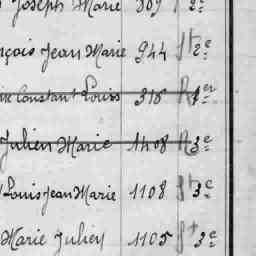 Joseph Marie 309 2e
nçois Jean Marie 944 St 2e
Constant Louis 318 R 1er
Julien Marie 1408 R 3e
Louis Jean Marie 1108 St 3e
Marie Julien 1105 St 3e